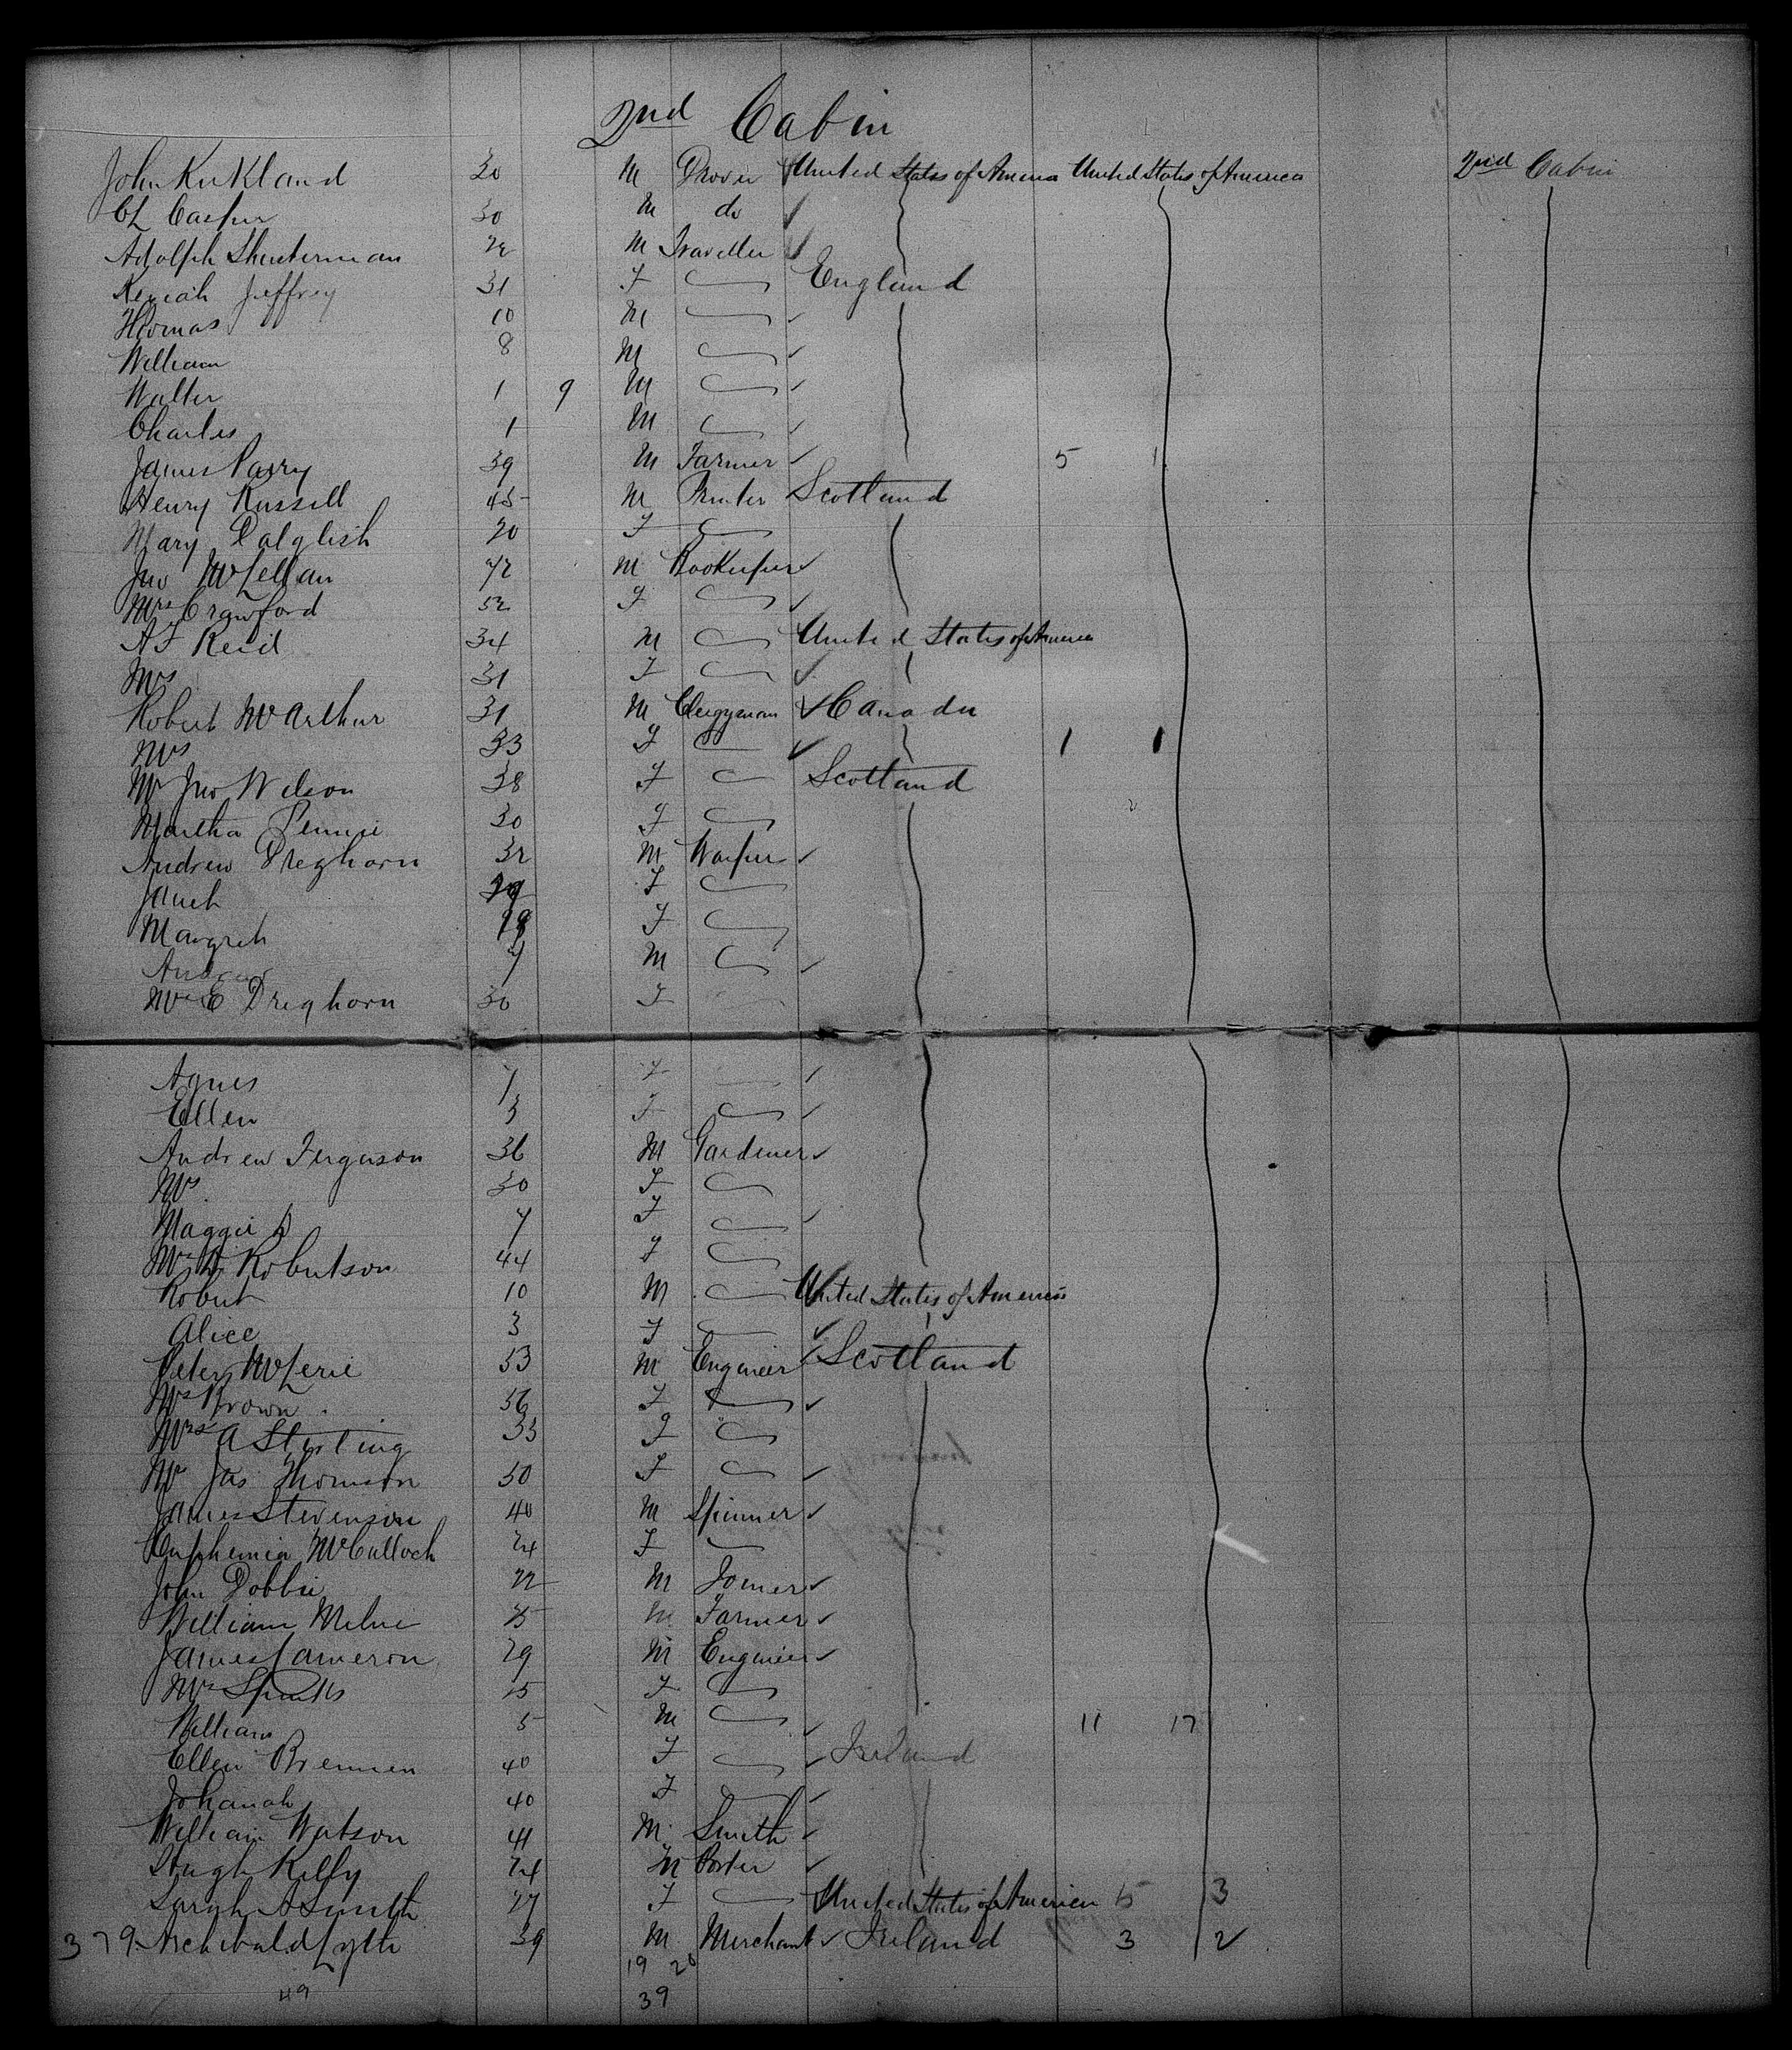 2nd Cabin
John Kirkland 30 M Drover United States of America United States of America 2nd Cabin
30 M do
Adolph Shusterman 22 M Traveller
Keziah Jeffrey 31 F England
Thomas 10 M
William 8 M
Walter 1 9 M
Charles 1 M
James Parry 39 M Farmer 5 1
Henry Russell 45 M Printer Scotland
Mary Dalglish 20 F
Jno McLellan 42 M Bookeeper
Mrs Crawford 52 F
A F Reid 34 M United States of America
Mrs 31 F
Robert McArthur 31 M Clergyman Canada
Mrs 33 F 1 1
Mrs Jno Wilson 38 F Scotland
Martha Rennie 30 F
Andrew Dreghorn 32 M
Janet F
Margret F
Andrew M
Mrs E Dreghorn 30 F
Agnes F
Ellen 3 F
Andrew Ferguson 36 M Gardener
Mrs 30 F
Maggie 7 F
Mrs Robertson 44 F
Robert 10 M United States of America
Alice 3 F
Peter 53 M Engineer Scotland
Mrs Brown 56 F
Mrs A Sterling 33 F
Mrs Jas Thomson 50 F
James Stevenson 40 M Spinner
Euphemia McCulloch 24 F
John Dobbie 22 M Joiner
William Milne M Farmer
James Cameron 29 M Engineer
Mrs Spinks 25 F
William 5 M 11 17
Ellen Brennen 40 F Ireland
Johanah 40 F
William Watson 41 M Smith
Hugh Kelly 24 M Porter
Sarah A Smith 27 F United States of America 15 3
379 Archibald Lytle 39 M Merchant Ireland 3 2
19 20
49 39